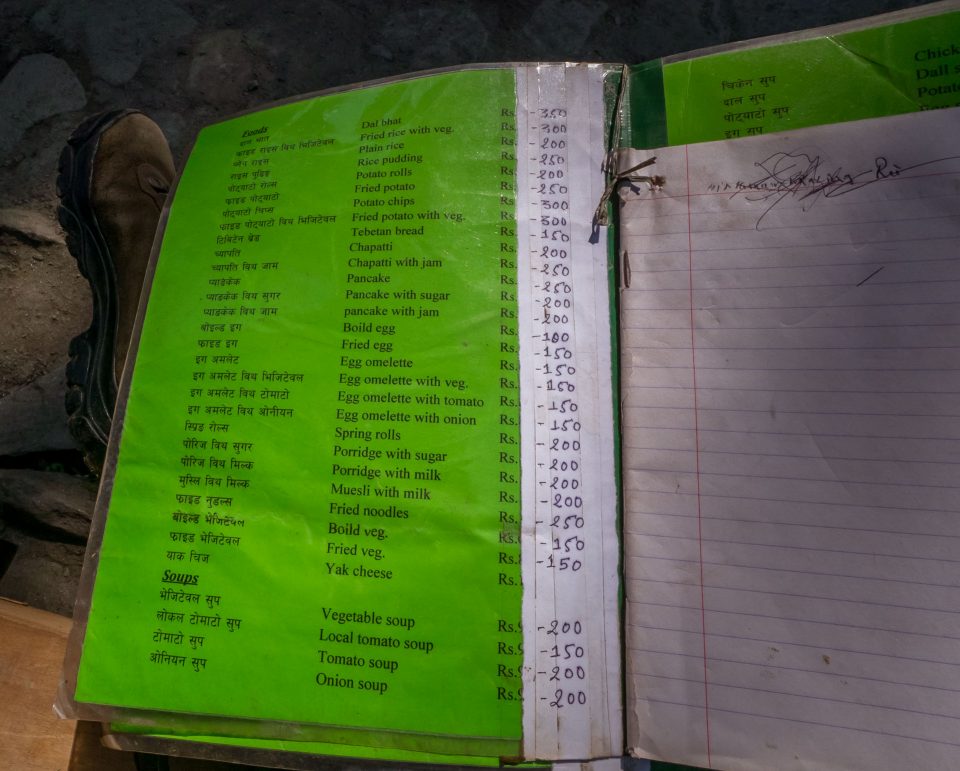 Foods
दाल भात Dal bhat Rs. -350
फ्राइड राइस विथ भिजिटेवल Fried rice with veg. Rs. -300
प्लेन राइस Plain rice Rs. -200
राइस पुडिङ Rice pudding Rs. -250
पोट्याटो रोल्स Potato rolls Rs. -200
फ्राइड पोट्याटो Fried potato Rs. -250
पोट्याटो चिप्स Potato chips Rs. -300
फ्राइड पोट्याटो विथ भिजिटेवल Fried potato with veg. Rs. -300
टिबिटेन ब्रेड Tebetan bread Rs. -150
च्यापति Chapatti Rs. -200
च्यापति विथ जाम Chapatti with jam Rs. -250
प्याङकेक Pancake Rs. -250
प्याङकेक विथ सुगर Pancake with sugar Rs. -200
प्याङकेक विथ जाम pancake with jam Rs. -200
बोइल्ड इग Boild egg Rs. -100
फ्राइड इग Fried egg Rs. -150
इग अमलेट Egg omelette Rs. -150
इग अमलेट विथ भिजिटेवल Egg omelette with veg. Rs. -150
इग अमलेट विथ टोमाटो Egg omelette with tomato Rs. -150
इग अमलेट विथ ओनीयन Egg omelette with onion Rs. -150
स्प्रिङ रोल्स Spring rolls Rs. -200
पोरिज विथ सुगर Porridge with sugar Rs. -200
पोरिज विथ मिल्क Porridge with milk Rs. -200
मुस्लि विथ मिल्क Muesli with milk Rs. -200
फ्राइड नुडल्स Fried noodles Rs. -250
बोइल्ड भेजिटेवल Boild veg. Rs. -150
फ्राइड भेजिटेवल Fried veg. Rs. -150
याक चिज Yak cheese Rs.
Soups
भेजिटेवल सुप Vegetable soup Rs. -200
लोकल टोमाटो सुप Local tomato soup Rs. -150
टोमाटो सुप Tomato soup Rs. -200
ओनियन सुप Onion soup Rs. -200
चिकेन सुप Chick
दाल सुप Dall s
पोट्याटो सुप Potat
इग सुप